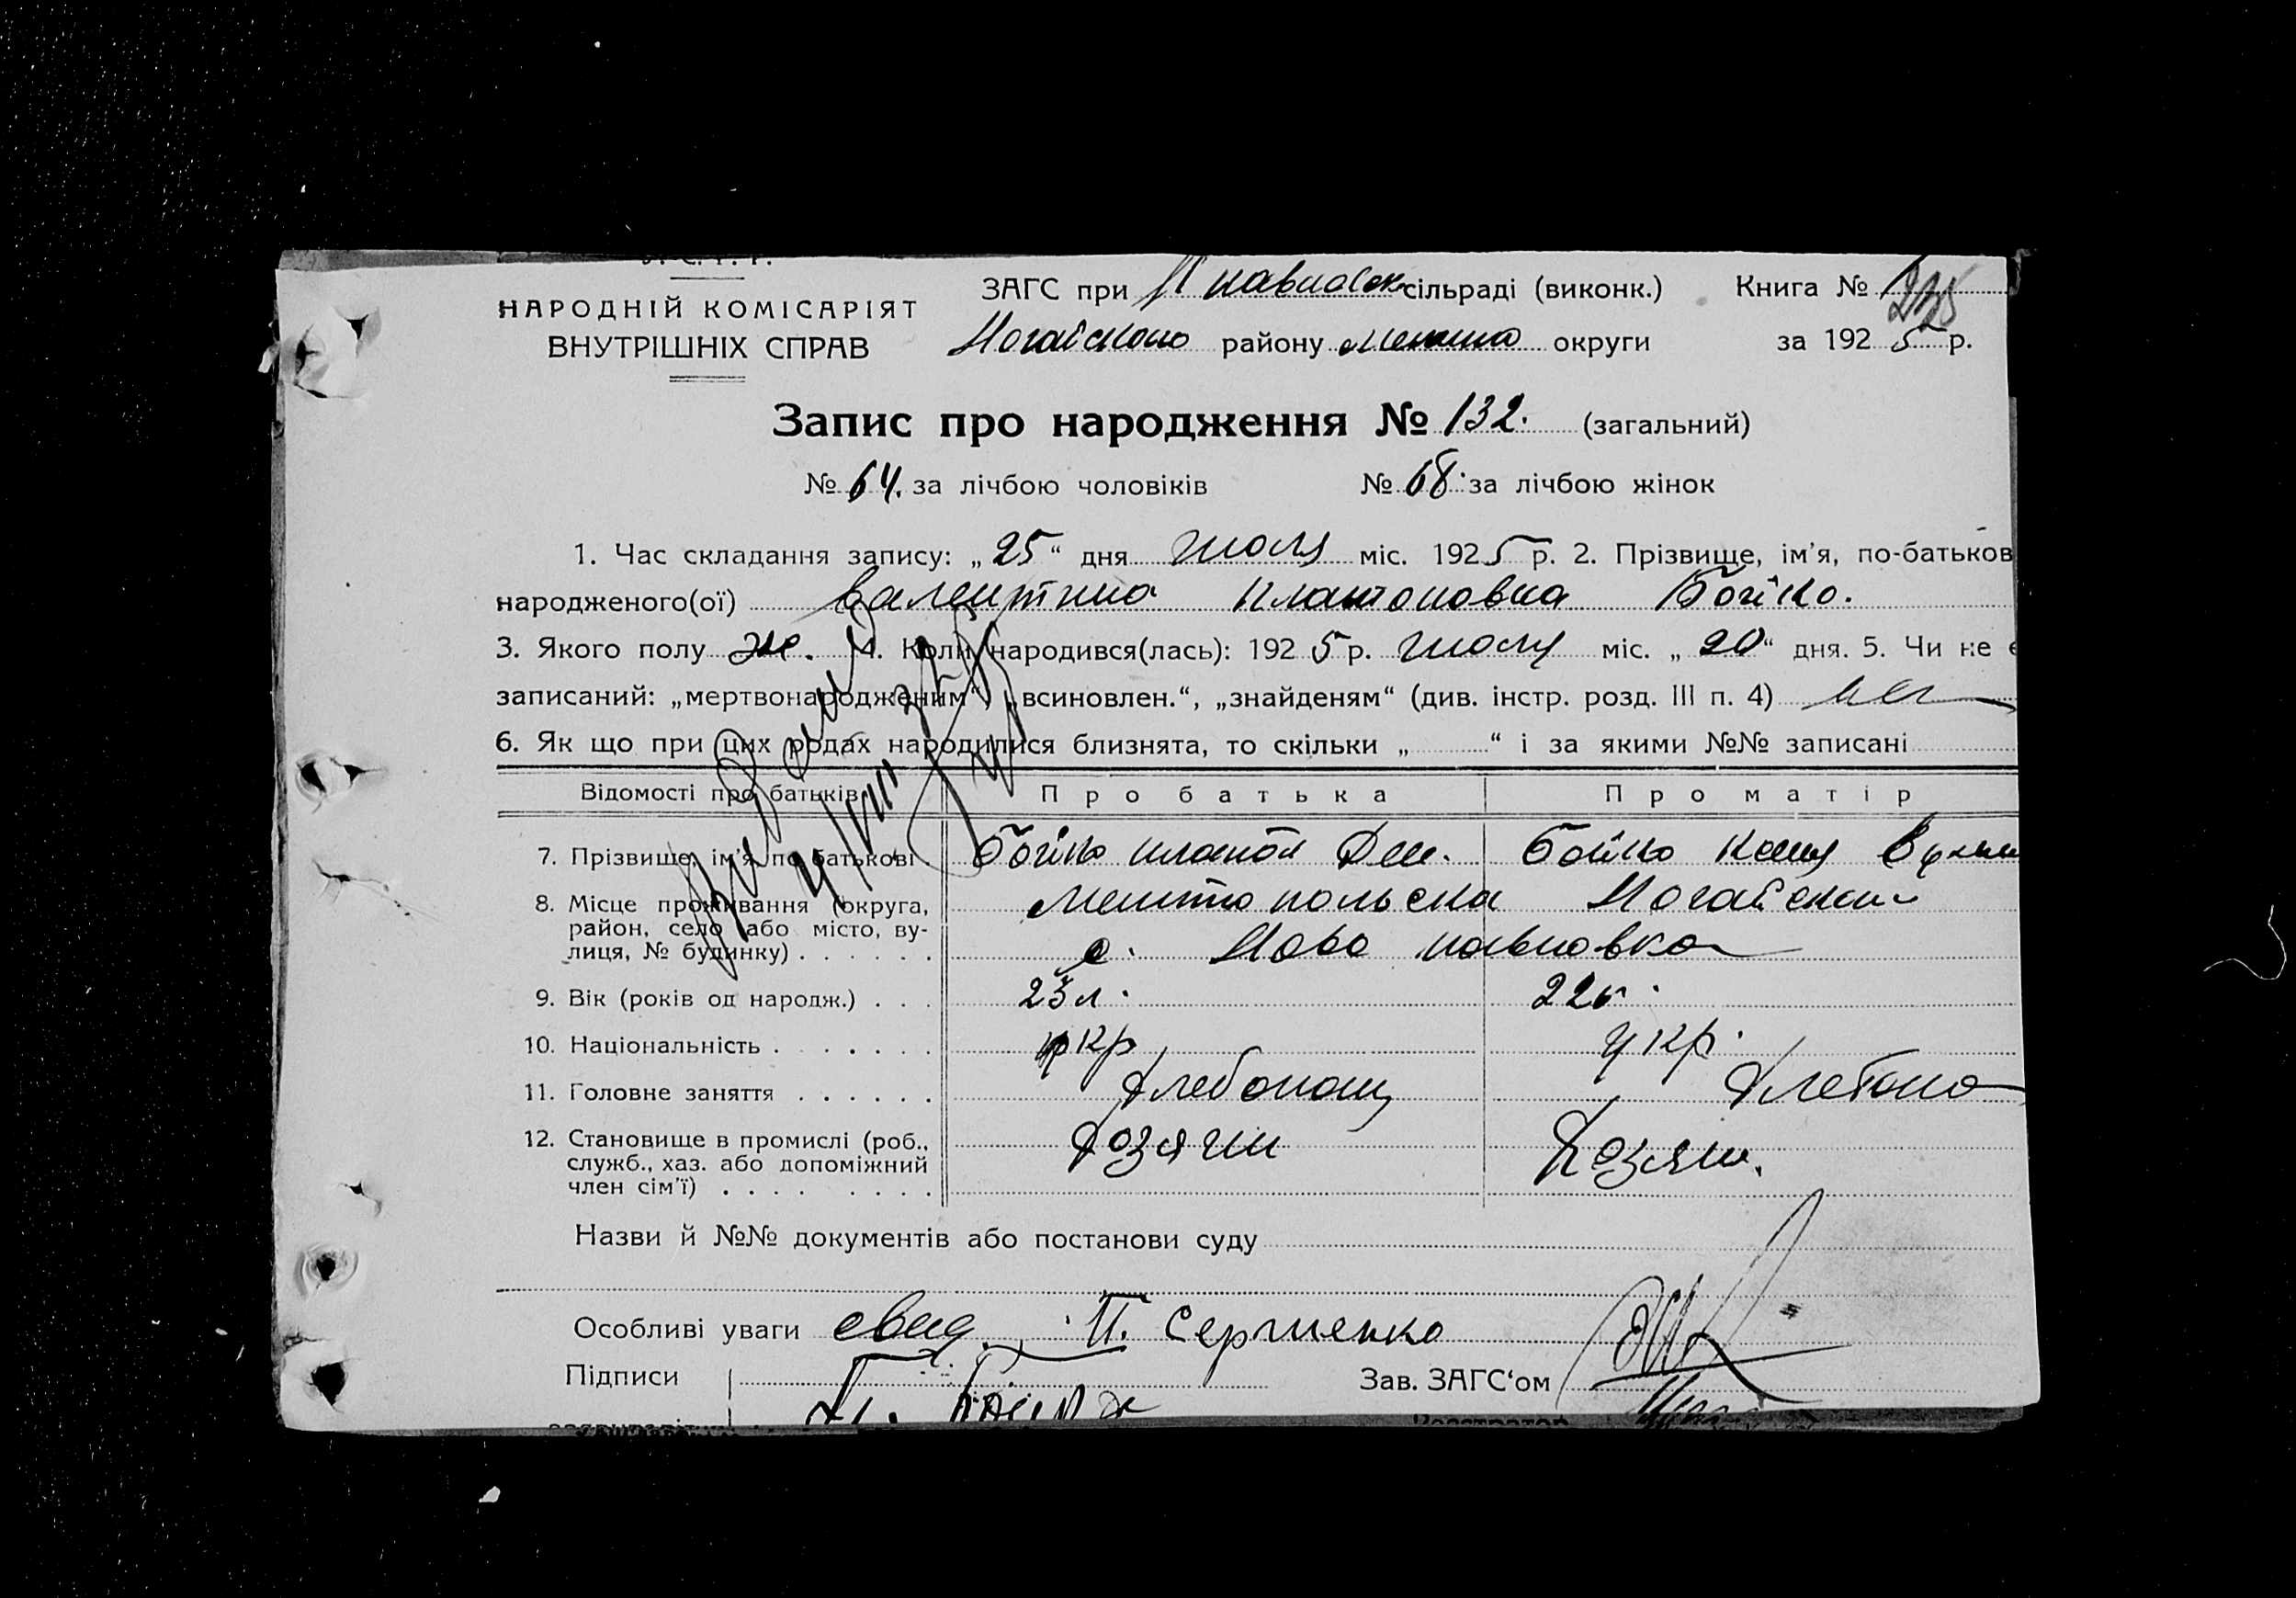 НАРОДНІЙ КОМІСАРІЯТ
ВНУТРІШНІХ СПРАВ
ЗАГС при Н павловск сільраді (виконк.) Книга №
Ногайского району округи за 1925 р.
Запис про народження № 132. (загальний)
№ 64. за лічбою чоловіків № 68. за лічбою жінок
1. Час складання запису: „25“ дня июля міс. 1925 р. 2. Прізвище, ім'я, по-батьков
народженого(ої) Валентина Платоновна Бойко.
3. Якого полу ж. 4. Коли народився(лась): 1925 р. июля міс. „20“ дня. 5. Чи не є
записаний: „мертвонародженим“, „всиновлен.“, „знайденям“ (див. інстр. розд. III п. 4)
6. Як що при цих родах народилися близнята, то скільки „ “ і за якими №№ записані
Відомості про батьків Про батька Про матір
7. Прізвище, ім'я, по батькові Бойко Платон Бойко
8. Місце проживання (округа, Мелитопольска Ногайский
район, село або місто, ву-
лиця, № будинку) с. Ново павловка
9. Вік (років од народж.) 23 л. 22
10. Національність укр укр.
11. Головне заняття хлебопаш хлебопа
12. Становище в промислі (роб., хозяин хозяи.
служб., хаз. або допоміжний
член сім'ї)
Назви й №№ документів або постанови суду
Особливі уваги свид. П. Сергиенко
Підписи Зав. ЗАГС‘ом